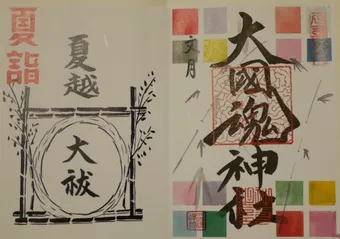 夏詣
夏越
大祓
大國魂神社
文月